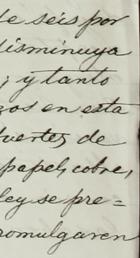 de seis por
disminuya
; y tanto
zos en esta
uertes de
papel, cobre,
ley se pre=
romulgaren